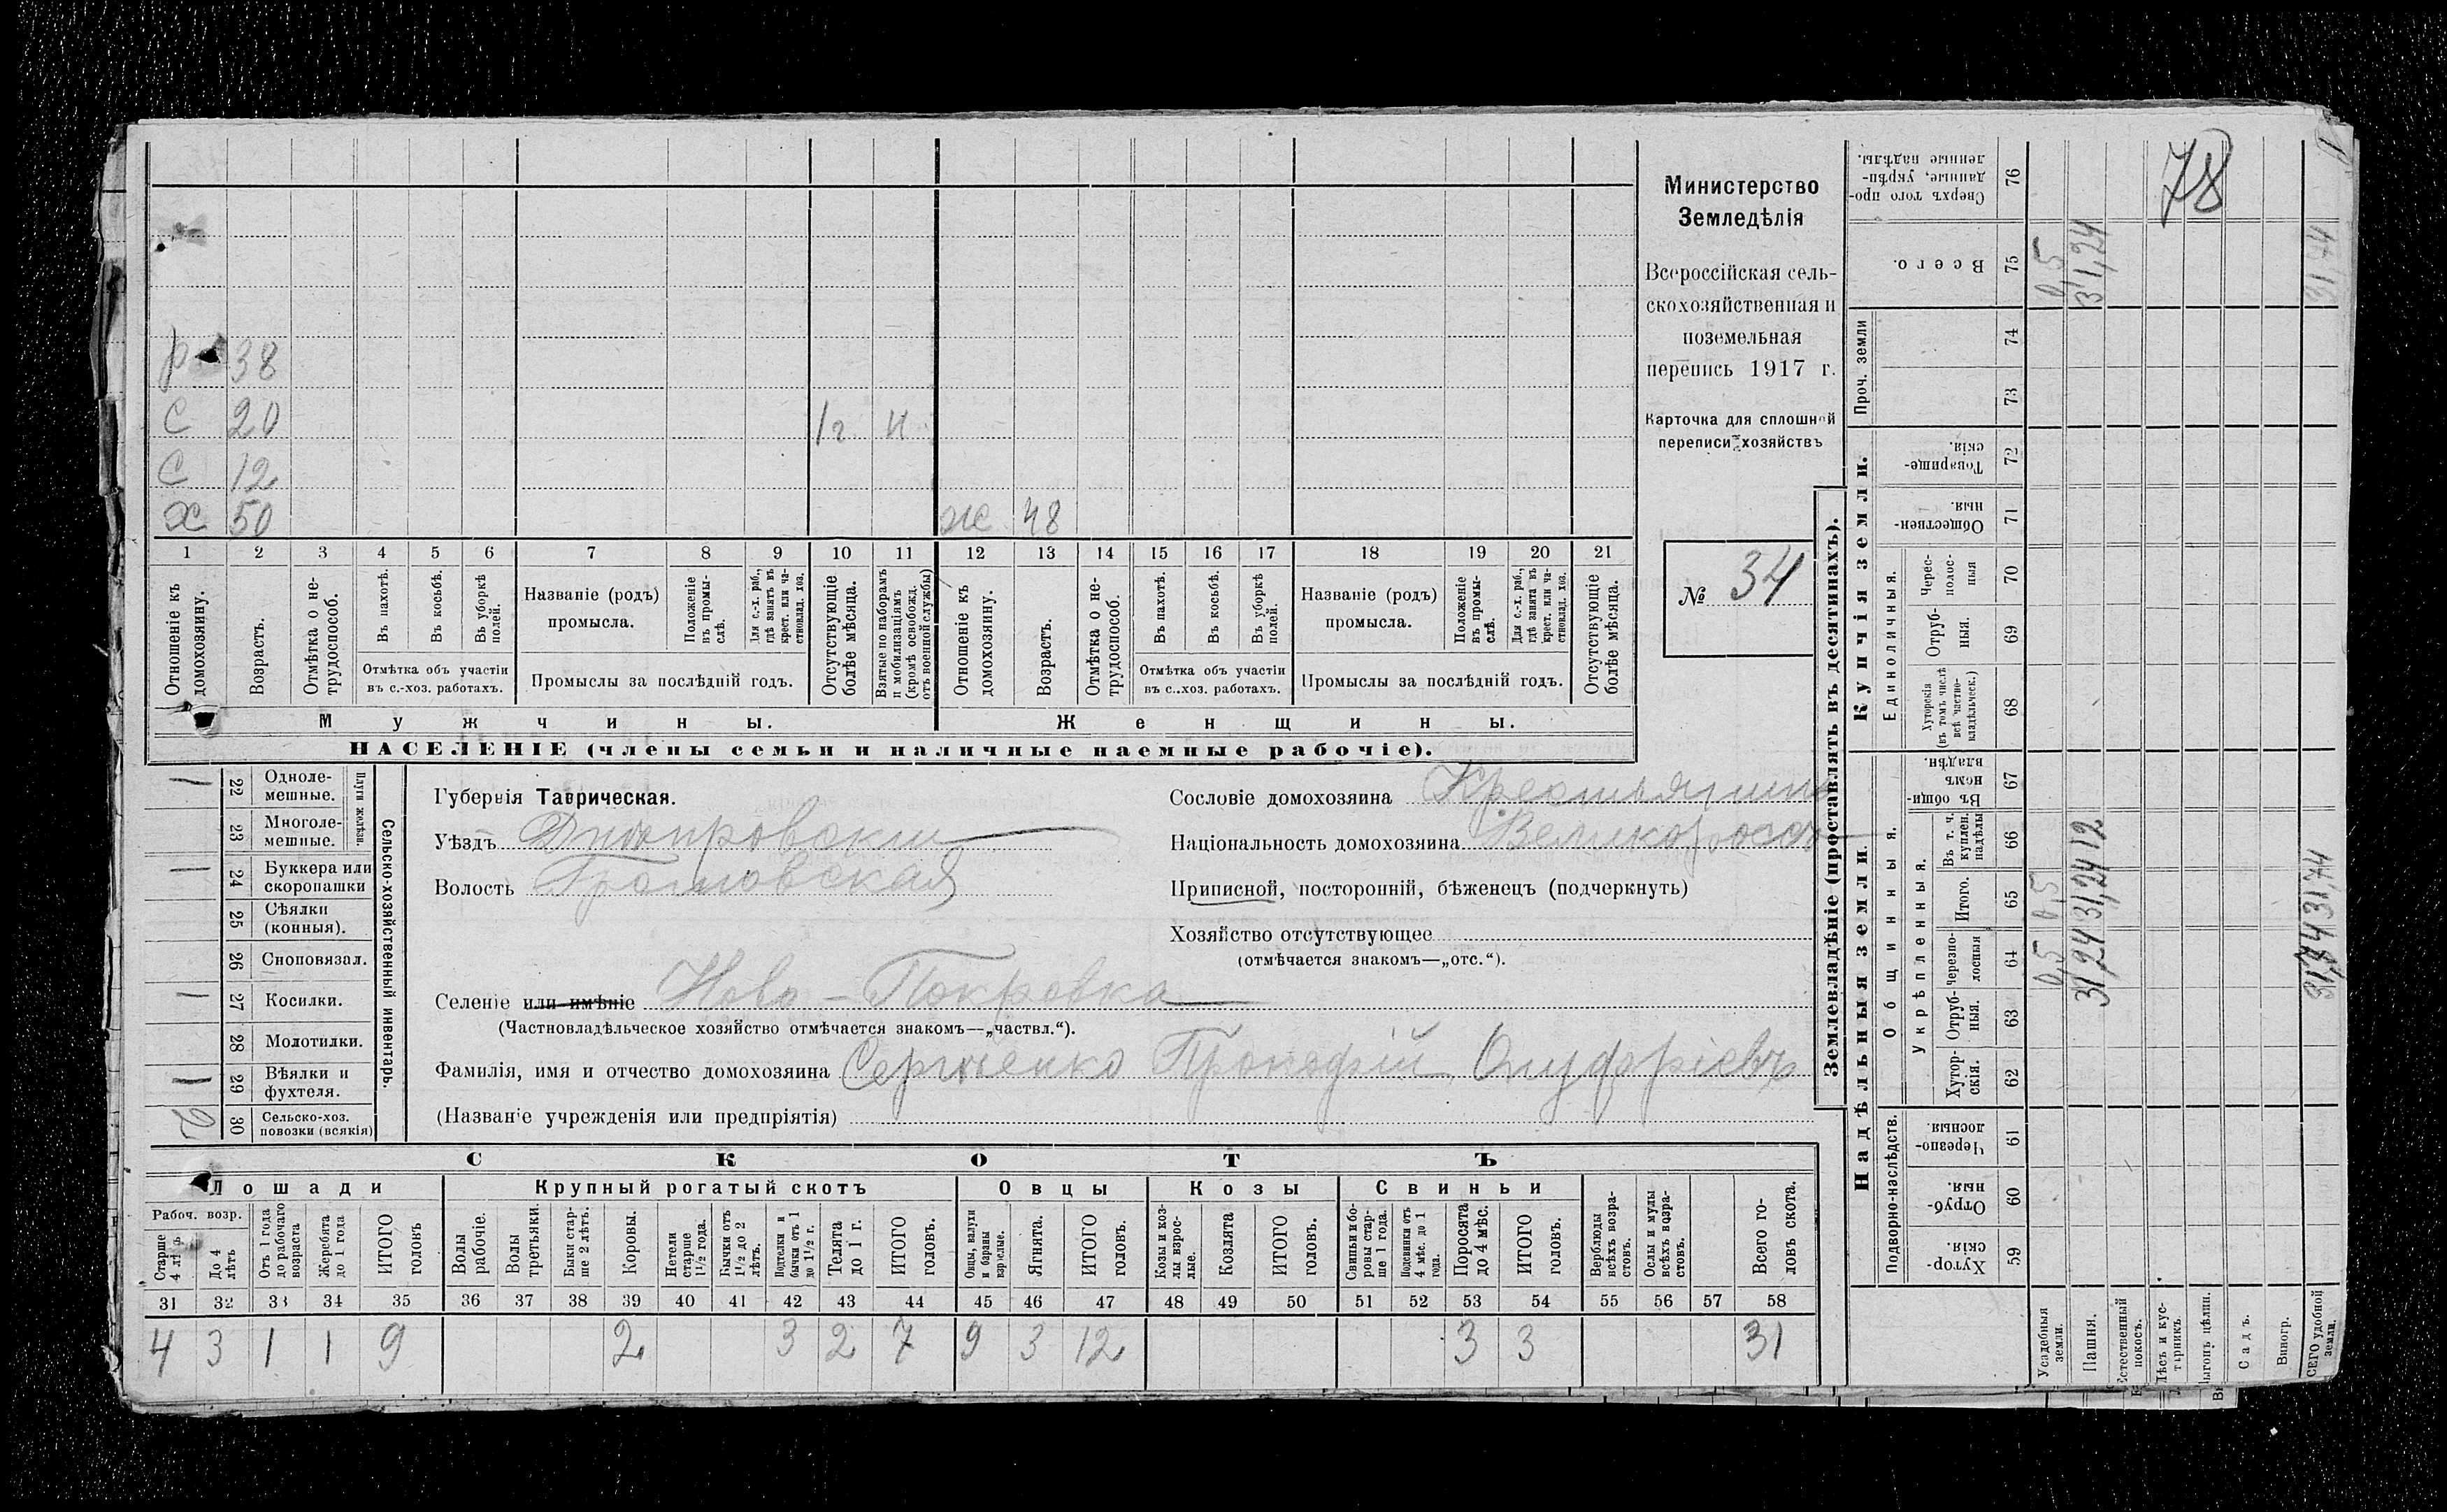 Министерство
Земледѣлія
Всероссійская сель-
скохозяйственная и
поземельная
перепись 1917 г.
Карточка для сплошной
переписи хозяйствъ
№ 34
78
1
р 38
С 20 1г н
С 12
Х 50 Ж 48
1 2 3 4 5 6 7 8 9 10 11 12 13 14 15 16 17 18 19 20 21
Отношеніе къ домохозяину.
Возрастъ.
Отмѣтка о не-трудоспособ.
Въ пахотѣ.
Въ косьбѣ.
Въ уборкѣ полей.
Отмѣтка объ участіи
въ с.-хоз. работахъ.
Названіе (родъ)
промысла.
Положеніе въ промы-слѣ.
Для с.-х. раб., гдѣ занятъ въ крест. или ча-стновлад. хоз.
Промыслы за послѣдній годъ.
Отсутствующіе болѣе мѣсяца.
Взятые по наборамъ и мобилизаціямъ (кромѣ освобожд. отъ военной службы)
Отношеніе къ домохозяину.
Возрастъ.
Отмѣтка о не-трудоспособ.
Въ пахотѣ.
Въ косьбѣ.
Въ уборкѣ полей.
Отмѣтка объ участіи
въ с..хоз. работахъ.
Названіе (родъ)
промысла.
Положеніе въ промы-слѣ.
Для с.-х. раб., гдѣ занята въ крест. или ча-стновлад. хоз.
Промыслы за послѣдній годъ.
Отсутствующіе болѣе мѣсяца.
Мужчины.
Женщины.
НАСЕЛЕНІЕ (члены семьи и наличные наемные рабочіе).
1 22 Одноле-мешные.
23 Многоле-мешные.
Плуги желѣзн.
1 24 Буккера или скоропашки
25 Сѣялки (конныя).
26 Сноповязал.
1 27 Косилки.
28 Молотилки.
1 29 Вѣялки и фухтеля.
2 30 Сельско-хоз. повозки (всякія)
Сельско-хозяйственный инвентарь.
Губернія Таврическая.
Уѣздъ Днѣпровскій
Волость Громовская
Селеніе или имѣніе Ново-Покровка
(Частновладѣльческое хозяйство отмѣчается знакомъ—„частвл.“).
Фамилія, имя и отчество домохозяина Сергіенко Прокофій Онуфріевъ
(Названіе учрежденія или предпріятія)
Сословіе домохозяина Крестьянинъ
Національность домохозяина Великороссъ
Приписной, посторонній, бѣженецъ (подчеркнуть)
Хозяйство отсутствующее
(отмѣчается знакомъ—„отс.“).
СКОТЪ
Лошади
Крупный рогатый скотъ
Овцы
Козы
Свиньи
Рабоч. возр.
Старше 4 лѣтъ
До 4 лѣтъ
Отъ 1 года до рабочаго возраста
Жеребята до 1 года
ИТОГО головъ
Волы рабочіе.
Волы третьяки.
Быки стар-ше 2 лѣтъ.
Коровы.
Нетели старше 1½ года.
Бычки отъ 1½ до 2 лѣтъ.
Подтелки и бычки отъ 1 до 1½ г.
Телята до 1 г.
ИТОГО головъ.
Овцы, валухи и бараны взрослые.
Ягнята.
ИТОГО головъ.
Козы и коз-лы взрос-лые.
Козлята
ИТОГО головъ.
Свиньи и бо-ровы стар-ше 1 года.
Подсвинки отъ 4 мѣс. до 1 года.
Поросята до 4 мѣс.
ИТОГО головъ.
Верблюды всѣхъ возра-стовъ.
Ослы и мулы всѣхъ возра-стовъ.
Всего го-ловъ скота.
31 32 33 34 35 36 37 38 39 40 41 42 43 44 45 46 47 48 49 50 51 52 53 54 55 56 57 58
4 3 1 1 9 2 3 2 7 9 3 12 3 3 31
Землевладѣніе (проставлять въ десятинахъ).
Надѣльныя земли.
Купчія земли.
Проч. земли
Подворно-наслѣдств.
Общинныя.
Укрѣпленныя.
Единоличныя.
Хутор-скія. 59
Отруб-ныя. 60
Черезпо-лосныя 61
Хутор-скія. 62
Отруб-ныя. 63
Черезпо-лосныя 64
Итого. 65
Въ т. ч. куплен. надѣлы 66
Въ общи-номъ владѣн. 67
Хуторскія (въ томъ числѣ всѣ частно-владѣльческ.) 68
Отруб-ныя. 69
Черес-полос-ныя 70
Обществен-ныя. 71
Товарище-скія. 72
73
74
Всего. 75
Сверхъ того про-данные, укрѣп-ленные надѣлы. 76
Усадебныя земли. 0,5 0,5 0,5
Пашня. 31,24 31,24 12 31,24
Естественный покосъ.
Лѣсъ и кус-тарникъ.
Выгонъ цѣлин.
Садъ.
Виногр.
ВСЕГО удобной земли. 31,74 31,74 31,74